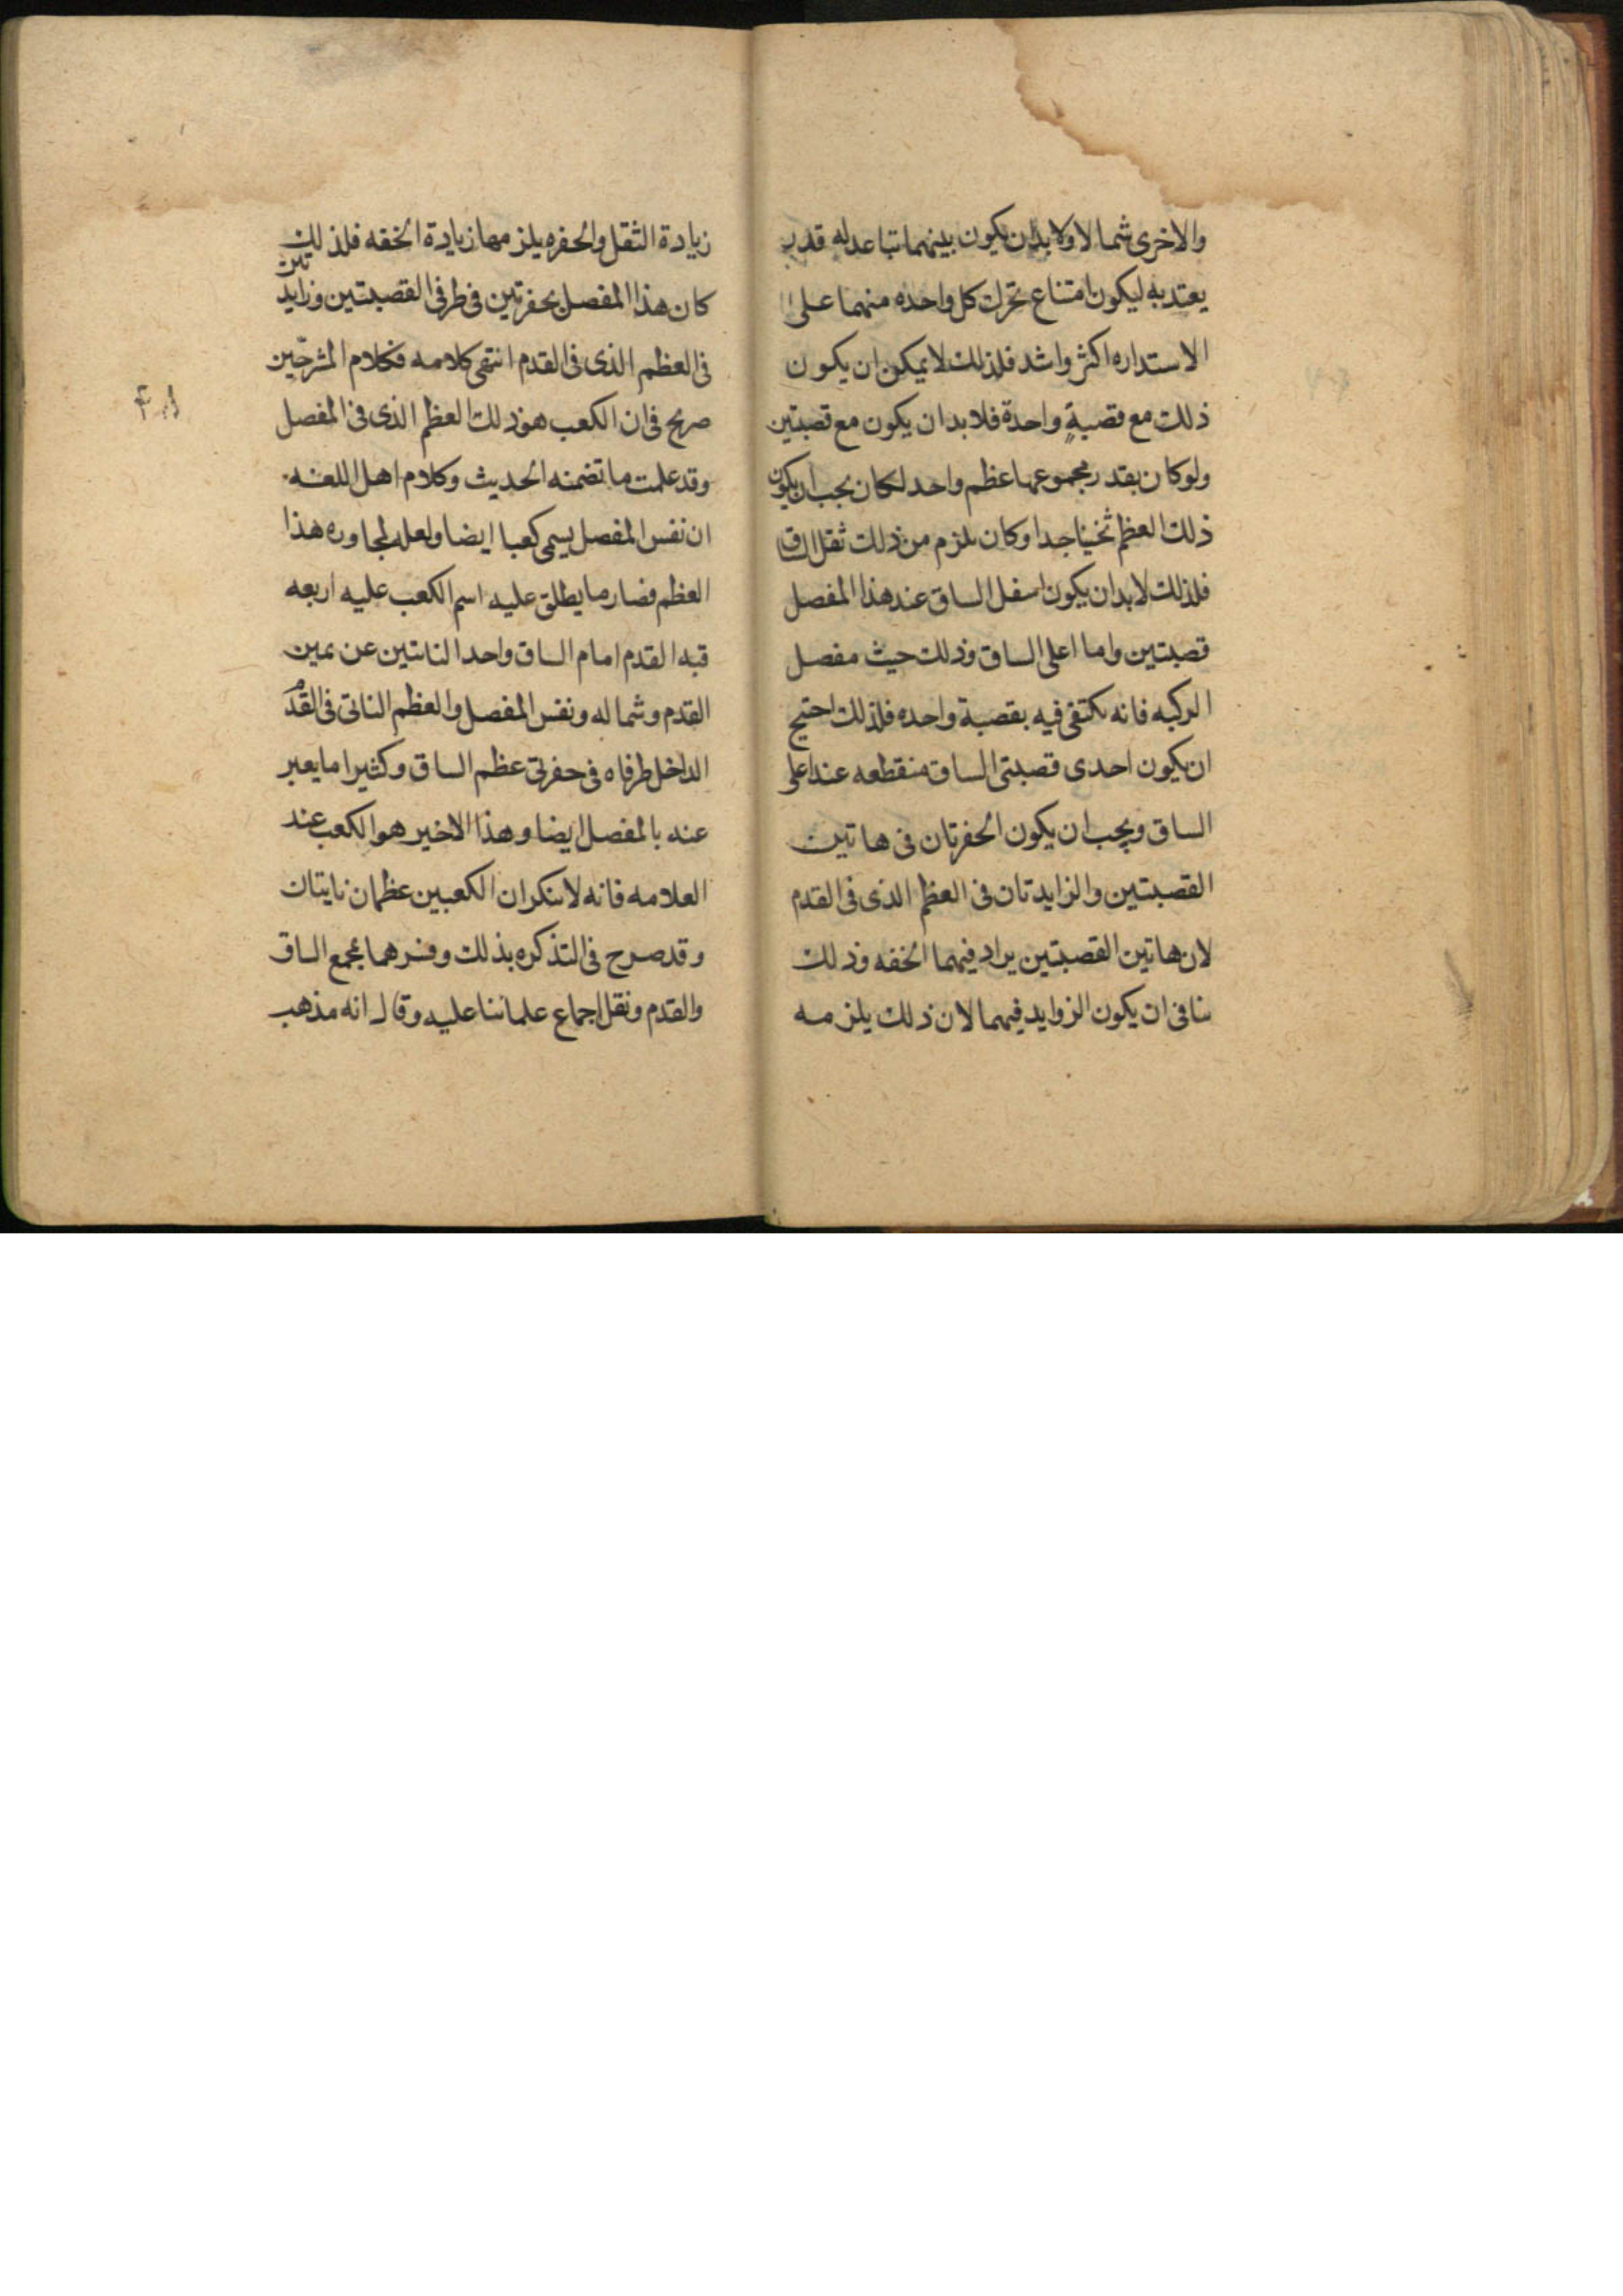 والاخرى شمالا ولا بد ان يكون بينهما تباعد له قدر
يعتد به ليكون امتناع تحرك كل واحده منهما على
الاستداره اكثر واشد فلذلك لا يمكن ان يكون
ذلك مع قصبة واحدة فلا بد ان يكون مع قصبتين
ولو كان بقدر مجموعهما عظم واحد لكان يجب ان يكون
ذلك العظم ثخينا جدا وكان يلزم من ذلك ثقل الساق
فلذلك لا بد ان يكون اسفل الساق عند هذا المفصل
قصبتين واما اعلى الساق وذلك حيث مفصل
الركبه فانه يكتفى فيه بقصبة واحده فلذلك احتيج
ان يكون احدى قصبتى الساق منقطعه عند اعلى
الساق ويجب ان يكون الحفرتان فى هاتين
القصبتين والزايدتان فى العظم الذى فى القدم
لان هاتين القصبتين يراد فيهما الخفه وذلك
ينافى ان يكون الزوايد فيهما لان ذلك يلزمه
زيادة الثقل والحفره يلزمها زيادة الخفه فلذلك
كان هذا المفصل بحفرتين فى طرفى القصبتين وزايدتين
فى العظم الذى فى القدم انتهى كلامه فكلام المشرحّين
صريح فى ان الكعب هو ذلك العظم الذى فى المفصل
وقد علمت ما تضمنه الحديث وكلام اهل اللغه
ان نفس المفصل يسمى كعبا ايضا ولعله لمجاوره هذا
العظم فصار ما يطلق عليه اسم الكعب عليه اربعه
قبه القدم امام الساق واحد الناتئين عن يمين
القدم وشماله ونفس المفصل والعظم الناتى فى القدم
الداخل طرفاه فى حفرتى عظم الساق وكثيرا ما يعبر
عنه بالمفصل ايضا وهذا الاخير هو الكعب عند
العلامه فانه لا ينكر ان الكعبين عظمان نايتان
وقد صرح فى التذكره بذلك وفسرهما بمجمع الساق
والقدم ونقل اجماع علمائنا عليه وقال انه مذهب